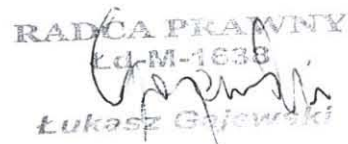 RADCA PRAWNY
Łd-M-1638
Łukasz Gajewski